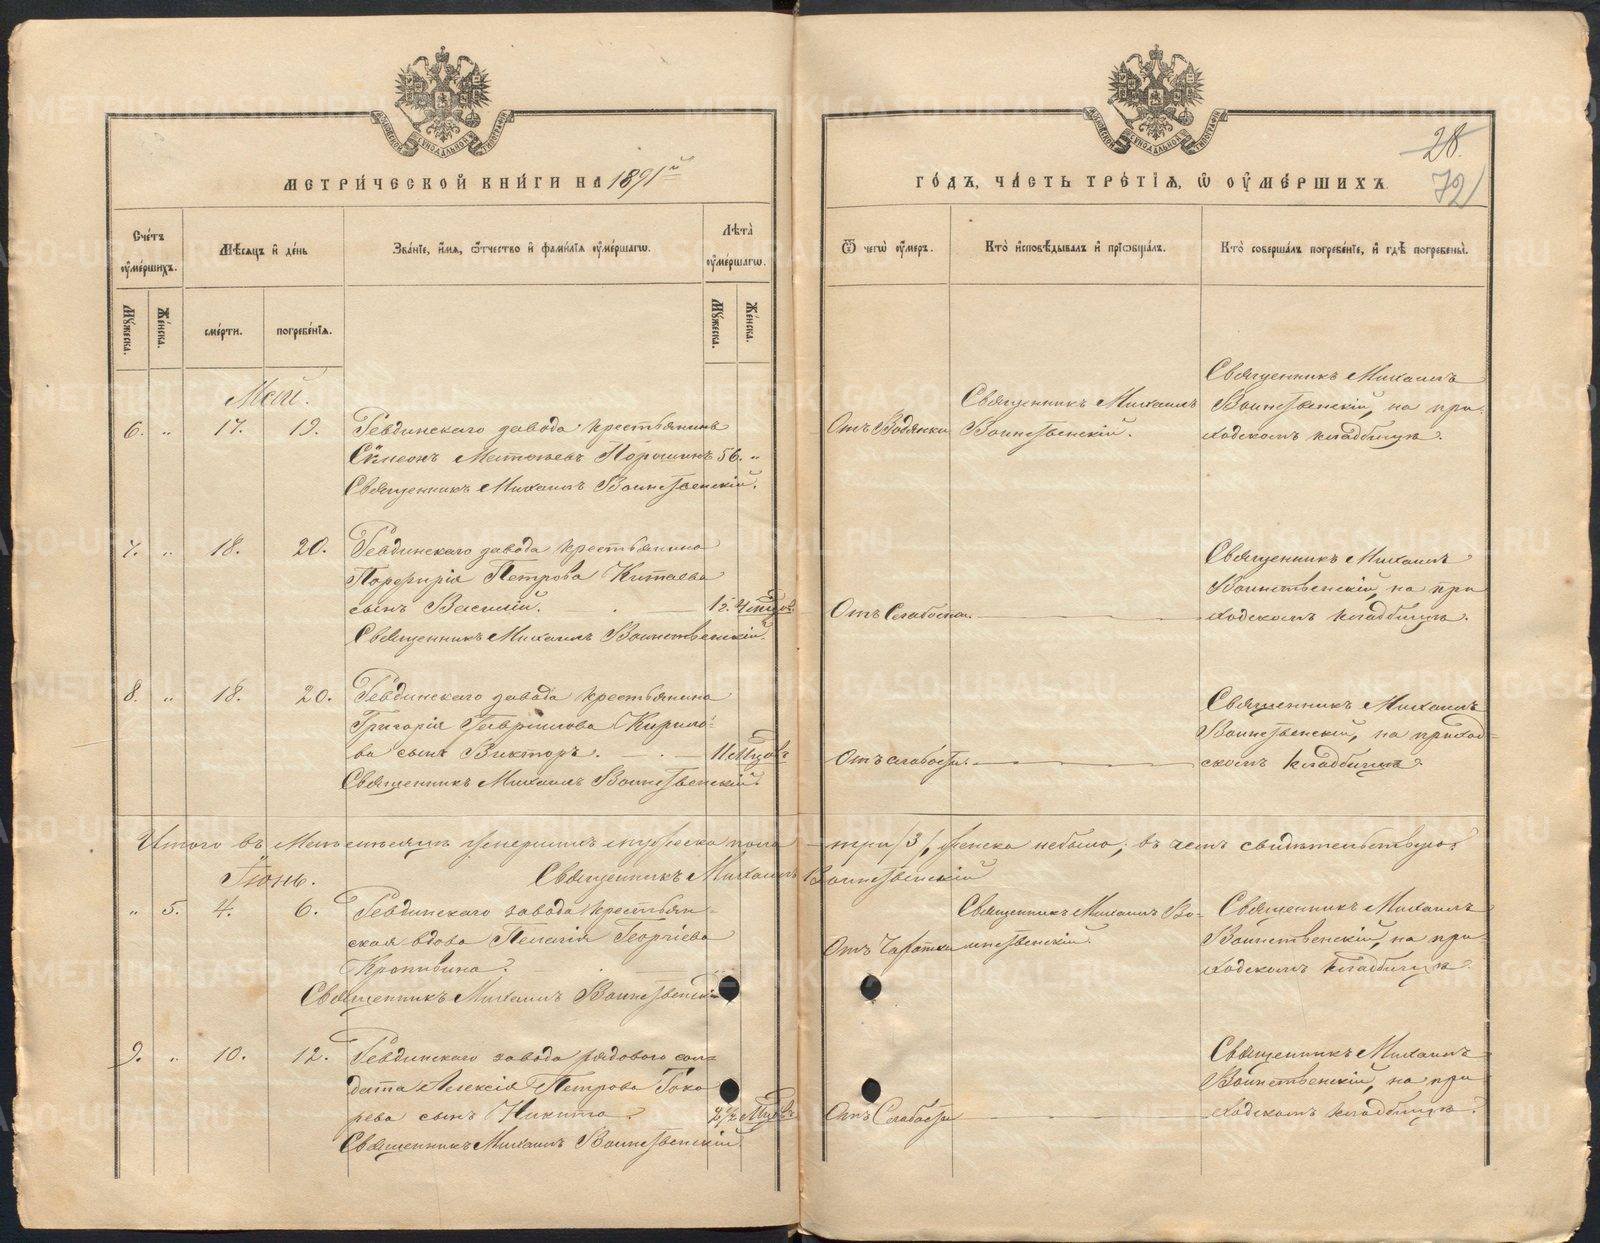 МЕТРИ́ЧЕСКОЙ КНИ́ГИ НА 1891й
ГО́ДЪ, ЧА́СТЬ ТРЕ́ТІЯ, Ѿ ОУМЕ́РШИХЪ.
28.
72
Сче́тъ оумершихъ.
Мѣсяцъ и де́нь
Зва́нїе, и́мя, о́тчество и фами́лїя оуме́ршагѡ.
Лѣта̀ оуме́ршагѡ.
Ѿ чегѡ̀ оу́меръ.
Кто̀ исповѣ́дывалъ и прїѡбща́лъ.
Кто̀ соверша́лъ погребе́нїе, и гдѣ̀ погребены̀.
Мужеска.
Же́нска.
сме́рти.
погребе́нїя.
Мужеска.
Же́нска.
Май.
6. „ 17. 19. Ревдинскаго завода крестьянинъ
Сѷмеонъ Матѳеевъ Порошинъ 56. „
Священникъ Михаилъ Воинственскій.
Отъ Водянки
Священникъ Михаилъ
Воинственскій.
Священникъ Михаилъ
Воинственскій, на при-
ходскомъ кладбищѣ.
7. „ 18. 20. Ревдинскаго завода крестьянина
Порфирія Петрова Китаева
сынъ Василій.
Священникъ Михаилъ Воинственскій.
Отъ Слабости.
Священникъ Михаилъ
Воинственскій, на при
ходскомъ кладбищѣ.
8. „ 18. 20. Ревдинскаго завода крестьянина
Григорія Гаврилова Кирило-
ва сынъ Викторъ. 11 мѣсцовъ
Священникъ Михаилъ Воинственскій.
Отъ слабости.
Священникъ Михаилъ
Воинственскій, на приход-
скомъ кладбищѣ.
Итого въ Маѣ мѣсяцѣ умершихъ мужеска пола три /3/, женска небыло; въ чемъ свидѣтельствую:
Священникъ Михаилъ Воинственскій
Іюнь.
„ 5. 4. 6. Ревдинскаго завода крестьян-
ская вдова Пелагія Георгіева
Крапивина.
Священникъ Михаилъ Воинственскій
Отъ Чахотки
Священникъ Михаилъ Во-
инственскій.
Священникъ Михаилъ
Воинственскій, на при-
ходскомъ кладбищѣ.
9. „ 10. 12. Ревдинскаго завода рядового сол-
дата Алексія Петрова Токо
рева сынъ Никита. 2½ мѣсцовъ
Священникъ Михаилъ Воинственскій.
Отъ Слабости
Священникъ Михаилъ
Воинственскій, на при
ходскомъ кладбищѣ.
METRIKI.GASO-URAL.RU